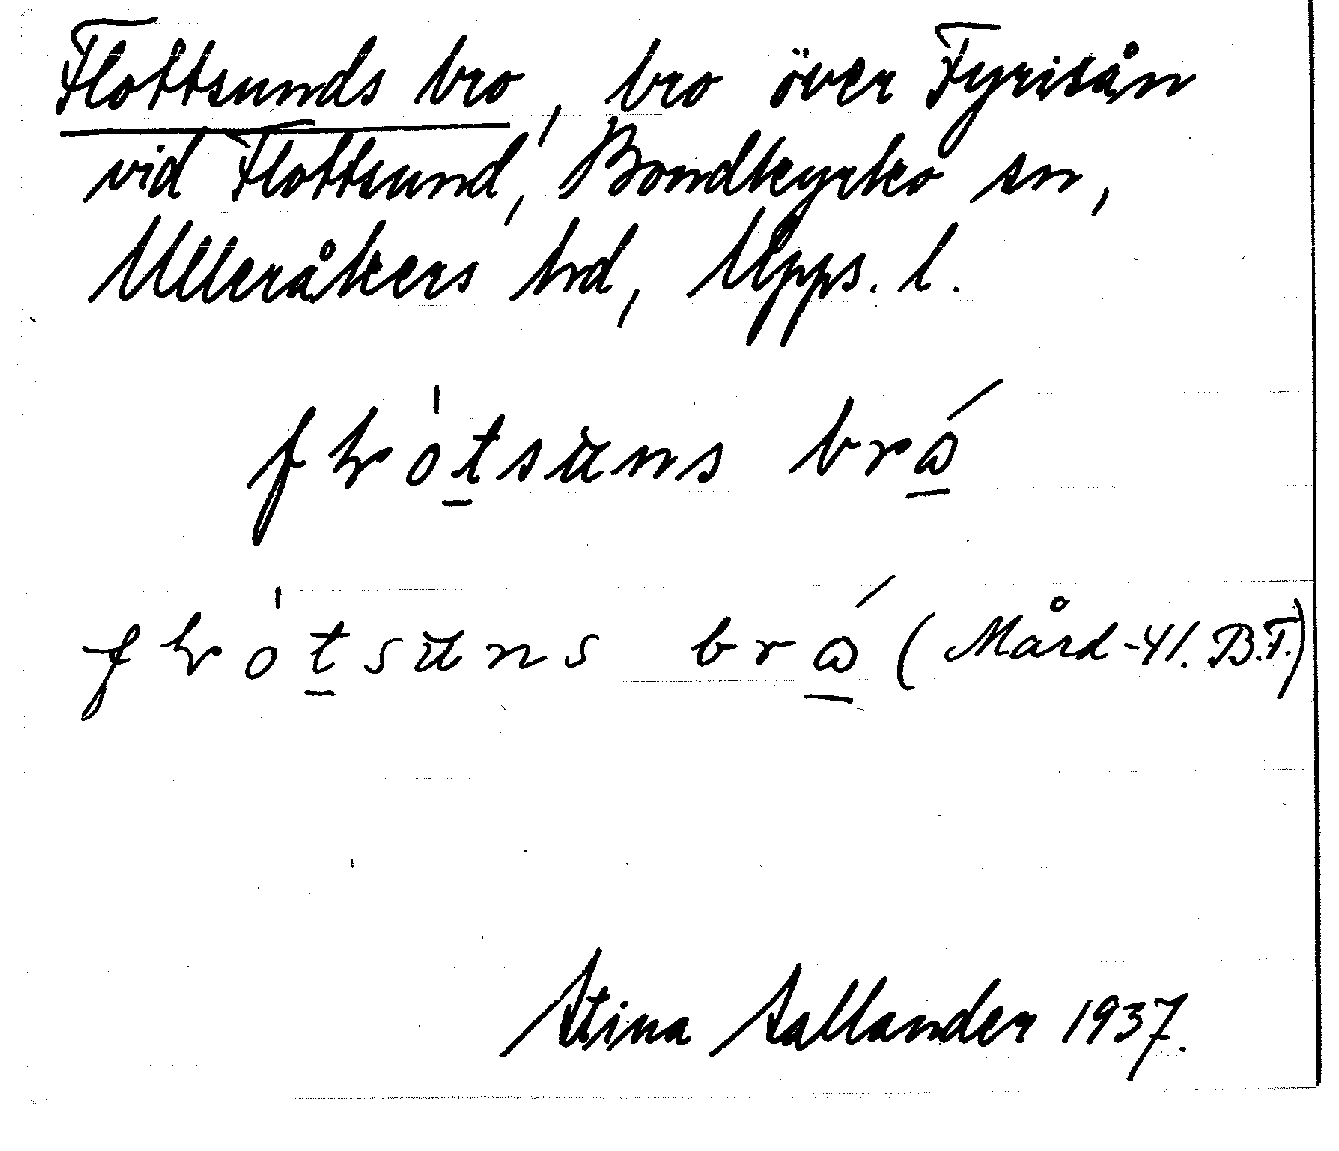 Flottsunds bro, bro över Fyrisån
vid Flottsund, Bondkyrko sn,
Ulleråkers hd, Upps. l.
(Mård -41. B.F.)
Stina Sallander 1937.